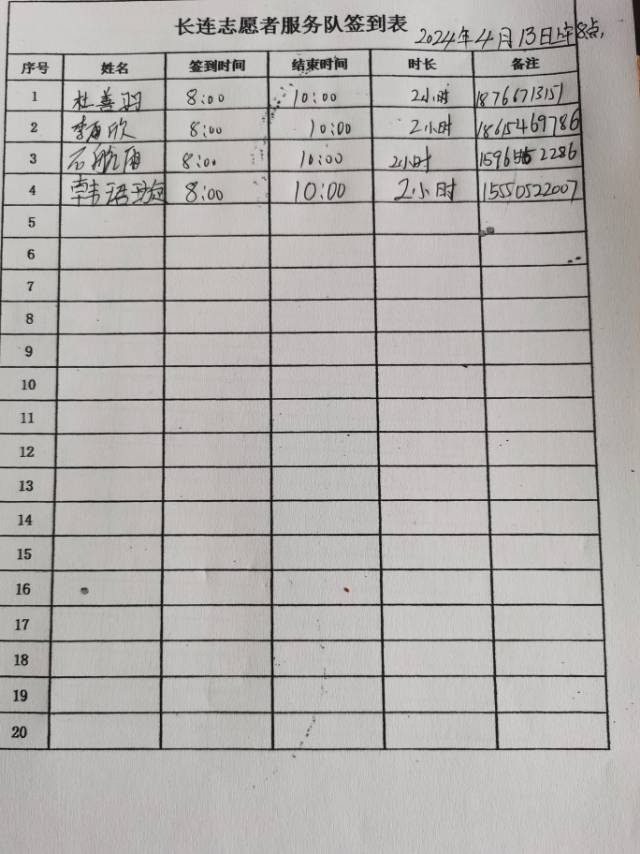 长连志愿者服务队签到表
2024年4月13日上午8点,
序号 姓名 签到时间 结束时间 时长 备注
1 杜善羽 8:00 10:00 2小时 18766713151
2 李 欣 8:00 10:00 2小时 18615469786
3 石航 8:00 10:00 2小时 2286
4 韩语 8:00 10:00 2小时 15550522007
5
6
7
8
9
10
11
12
13
14
15
16
17
18
19
20